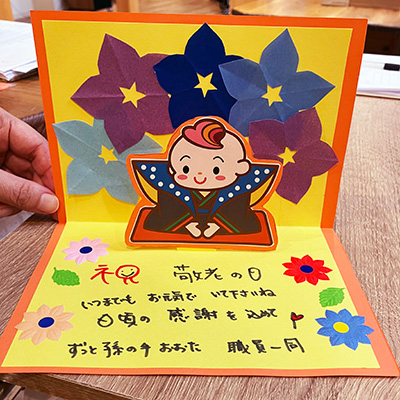 祝 敬老の日
いつまでも お元気で いて下さいね
日頃の 感謝を込めて
ずっと孫の手 おおた 職員一同